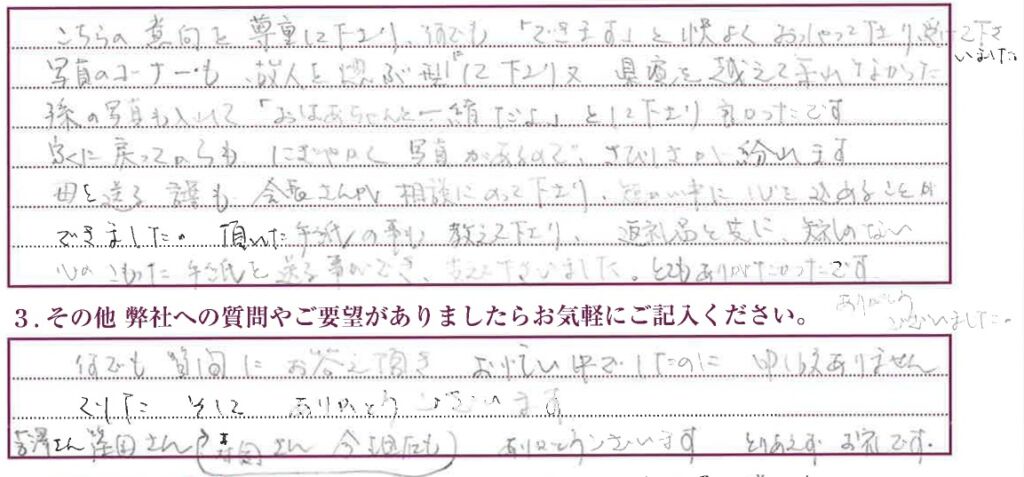 こちらの意向を尊重して下さり、何でも「できます」と快よくおっしゃって下さり受けて下さいました
写真のコーナーも、故人を偲ぶ型にして下さり又 県境を越えて来れなかった
孫の写真も入れて「おばあちゃんと一緒だよ」として下さり良かったです
家に戻ってからも にぎやかく写真があるので、さびしさが紛れます
母を送る 会長さんが相談にのって下さり、短い中に心を込めることが
できました。頂いた手紙の事も教えて下さり、返礼品と共に、失礼のない
心のこもった手紙を送る事ができ、下さいました。とてもありがたかったです
ありがとうございました。
3. その他 弊社への質問やご要望がありましたらお気軽にご記入ください。
何でも質問にお答え頂き お忙しい中でしたのに 申し訳ありません
でした そして ありがとうございます
さん さん さん ありがとうございます とりあえず お礼です.